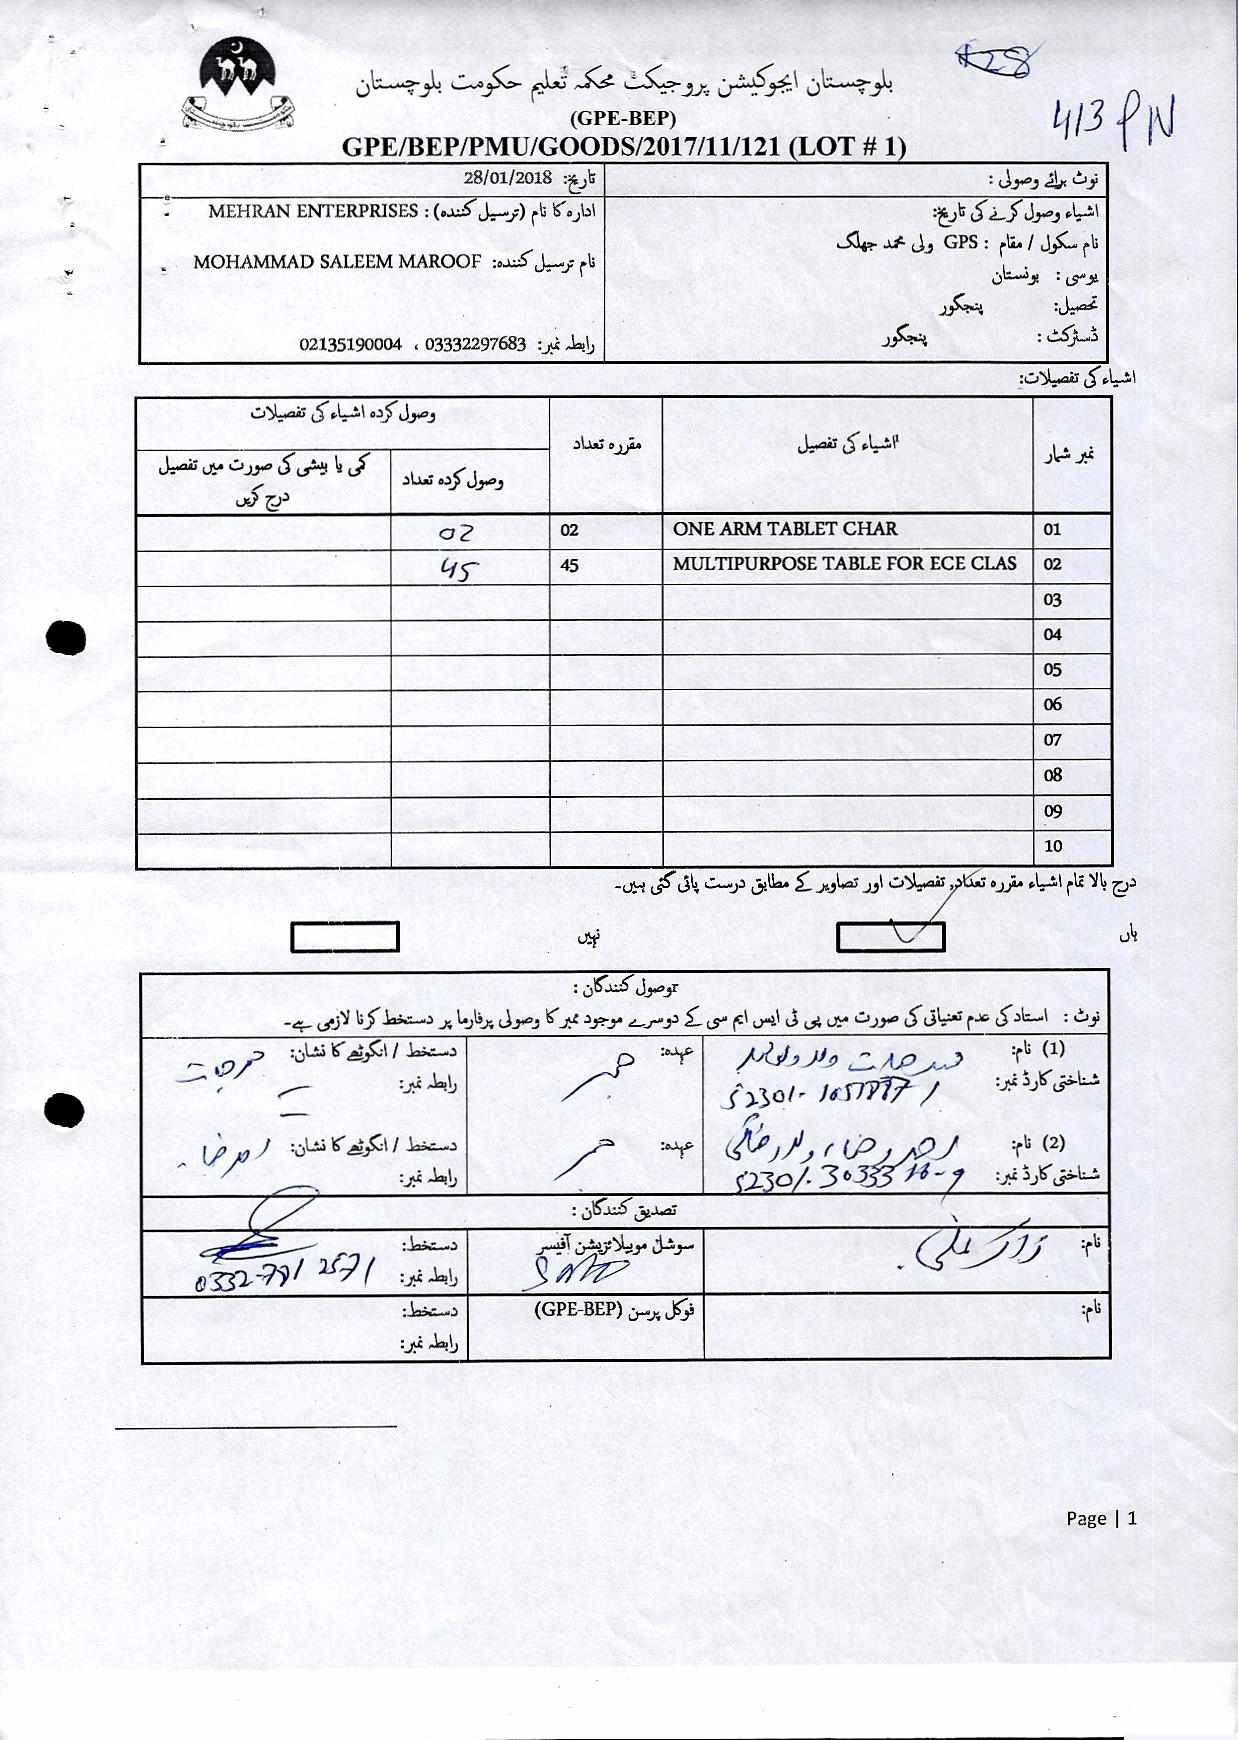 بلوچستان ایجوکیشن پروجیکٹ محکمہ تعلیم حکومت بلوچستان
(GPE-BEP)
413 PN
GPE/BEP/PMU/GOODS/2017/11/121 (LOT # 1)
نوٹ برائے وصولی :
تاریخ: 28/01/2018
اشیاء وصول کرنے کی تاریخ:
ادارہ کا نام (ترسیل کنندہ) : MEHRAN ENTERPRISES
نام سکول / مقام : GPS ولی محمد جھلگ
نام ترسیل کنندہ: MOHAMMAD SALEEM MAROOF
یوسی : بونستان
تحصیل: پنجگور
ڈسٹرکٹ : پنجگور
رابطہ نمبر: 03332297683 ، 02135190004
اشیاء کی تفصیلات:
نمبر شمار اشیاء کی تفصیل مقررہ تعداد وصول کردہ اشیاء کی تفصیلات
وصول کردہ تعداد کمی یا بیشی کی صورت میں تفصیل درج کریں
01 ONE ARM TABLET CHAR 02 02
02 MULTIPURPOSE TABLE FOR ECE CLAS 45 45
03
04
05
06
07
08
09
10
درج بالا تمام اشیاء مقررہ تعداد, تفصیلات اور تصاویر کے مطابق درست پائی گئی ہیں۔
ہاں نہیں
وصول کنندگان :
نوٹ : استاد کی عدم تعنیاتی کی صورت میں پی ٹی ایس ایم سی کے دوسرے موجود ممبر کا وصولی پرفارما پر دستخط کرنا لازمی ہے۔
(1) نام: عہدہ: ممبر دستخط / انگوٹھے کا نشان:
شناختی کارڈ نمبر: رابطہ نمبر:
(2) نام: عہدہ: ممبر دستخط / انگوٹھے کا نشان:
شناختی کارڈ نمبر: رابطہ نمبر:
تصدیق کنندگان :
نام: سوشل موبیلائزیشن آفیسر دستخط:
رابطہ نمبر: 0332-7812571
نام: فوکل پرسن (GPE-BEP) دستخط:
رابطہ نمبر:
Page | 1